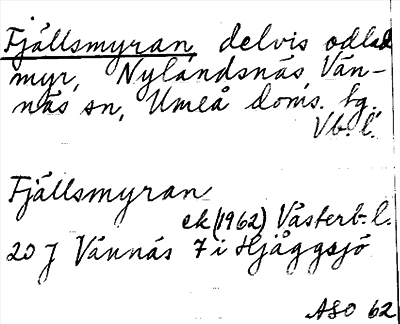 Fjällsmyran, delvis odlad
myr, Nylandsnäs, Vän-
näs sn, Umeå doms. tg.
Vb. l.
Fjällsmyran
ek (1962) Västerb. l.
20 J Vännäs 7 i Hjåggsjö
ASO 62